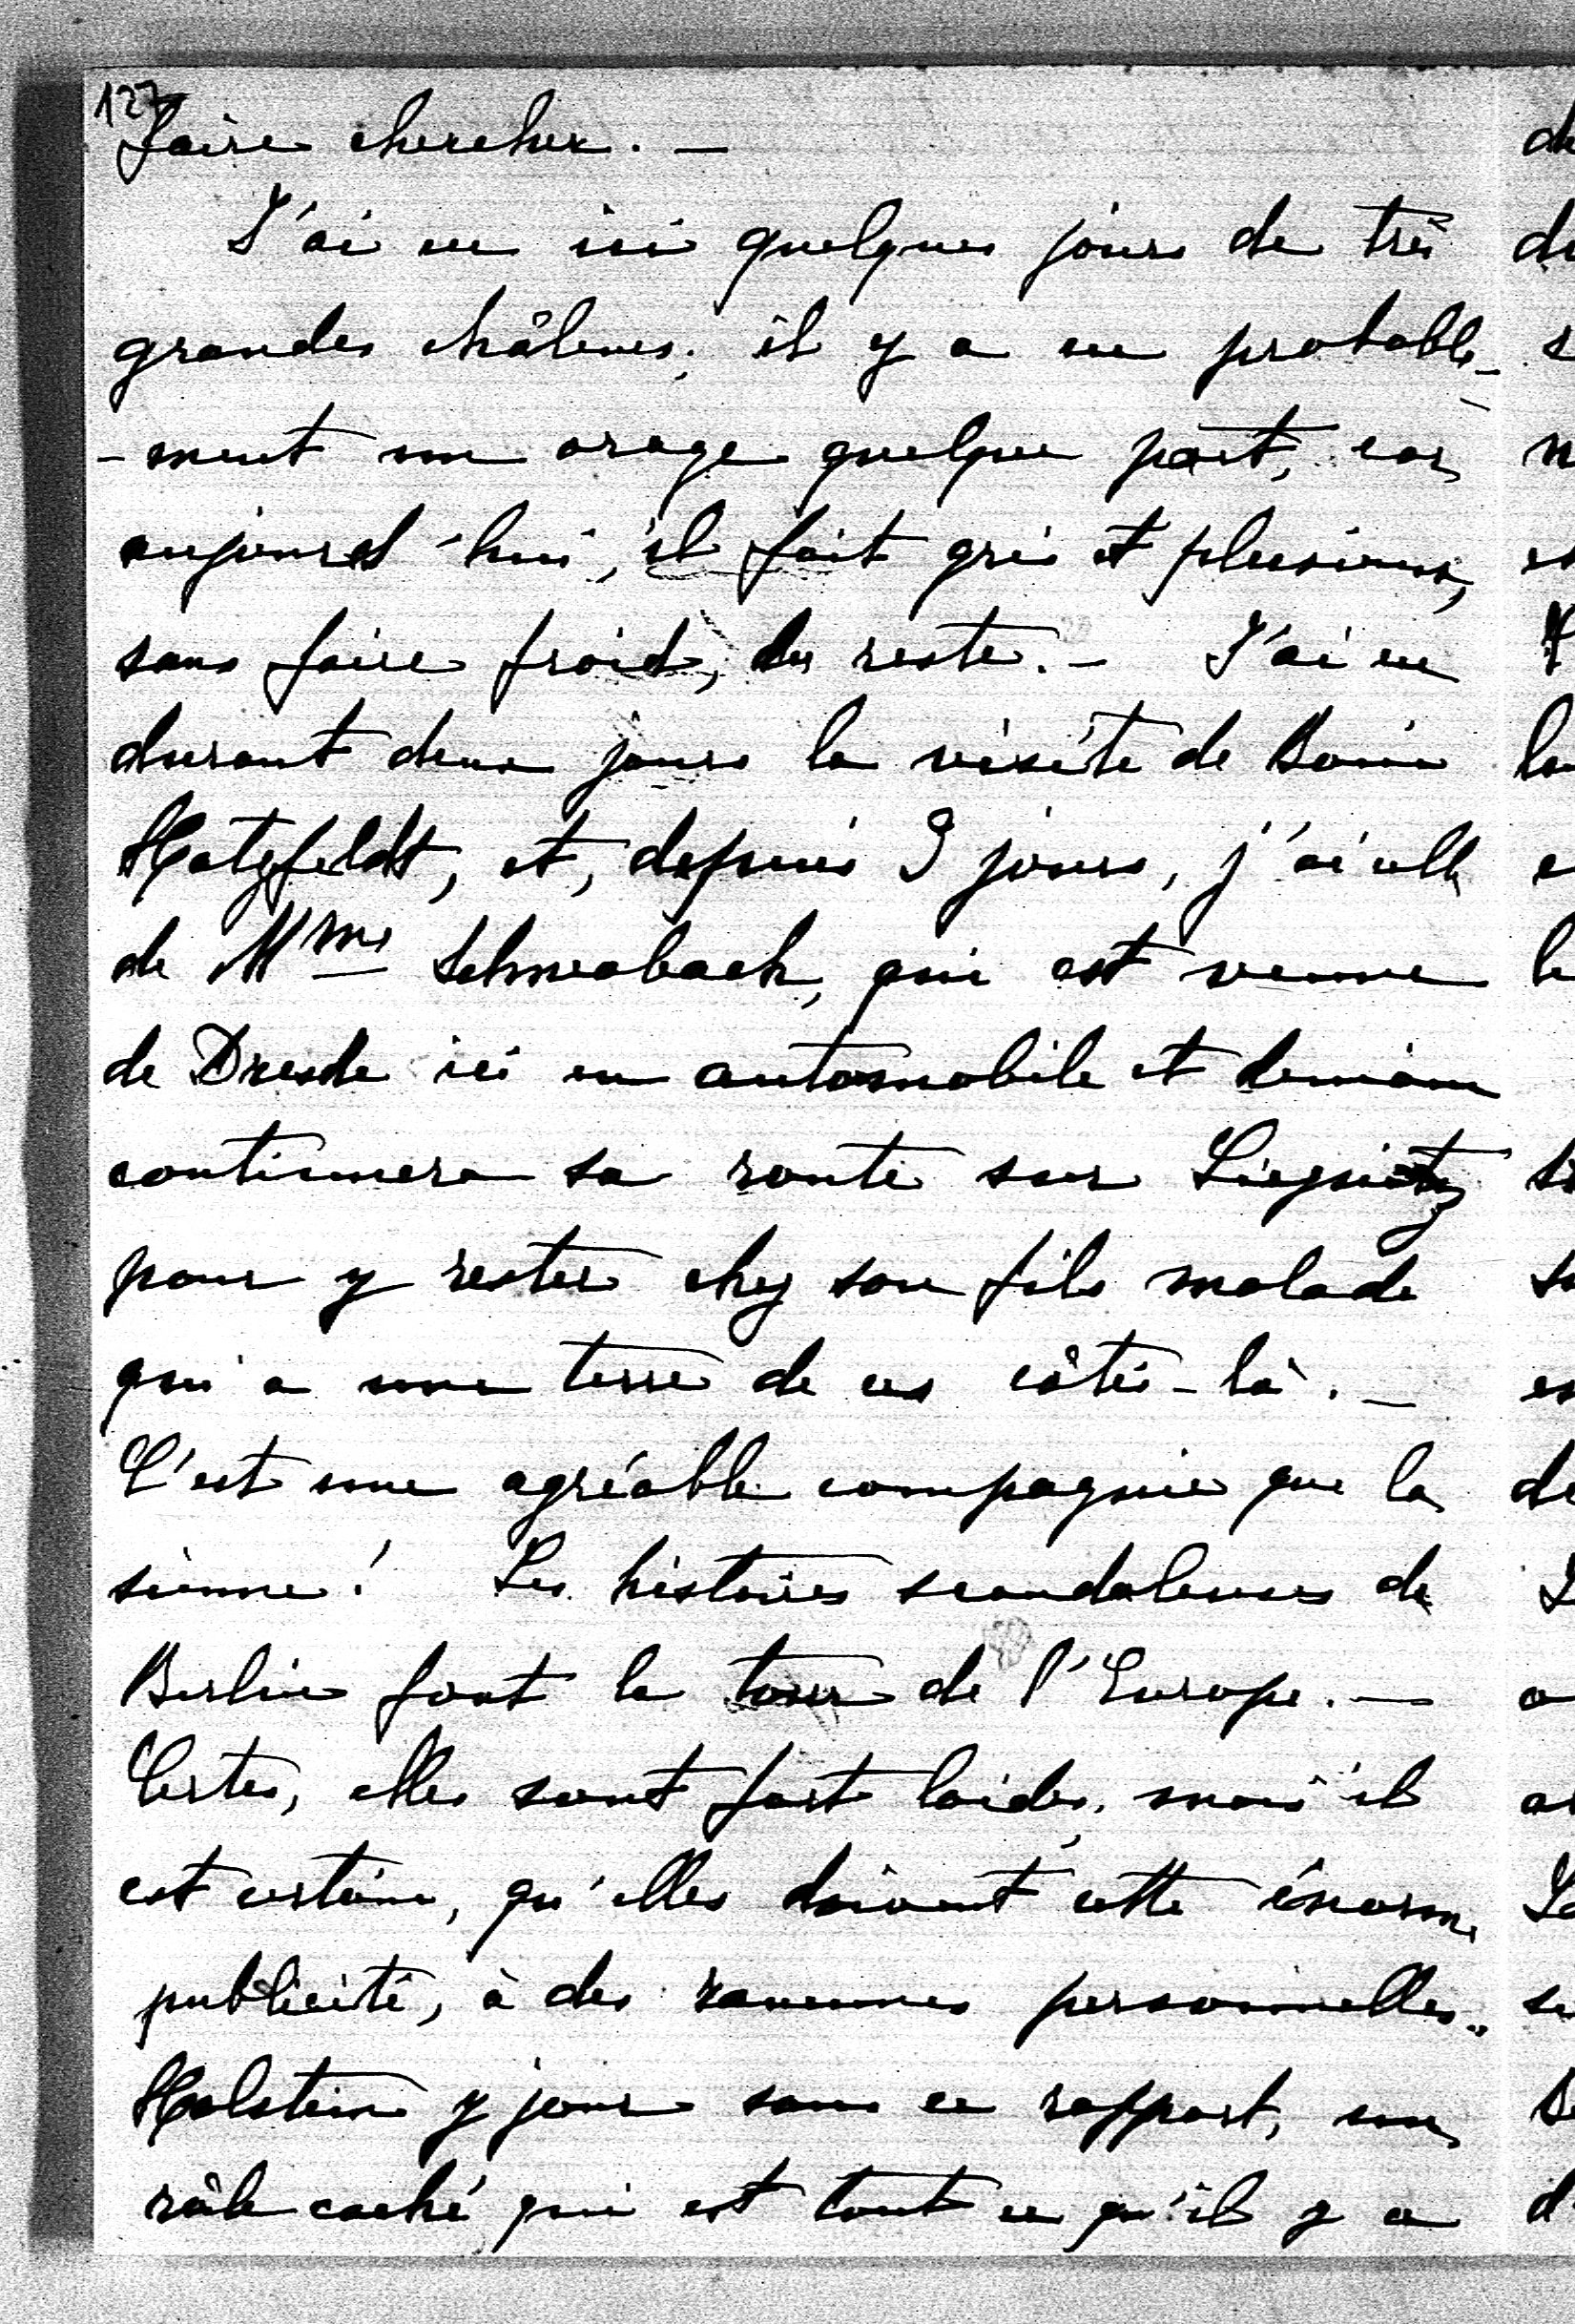 127
faire chercher. —
J'ai eu ici quelques jours de très
grandes châleurs; il y a eu probable-
-ment un orage quelque part, car
aujourd'hui, il fait gris et pluvieux,
sans faire froid, du reste. — J'ai eu
durant deux jours la visite de
Hatzfeldt, et, depuis 3 jours, j'ai celle
de Mme Schwabach, qui est venue
de Dresde ici en automobile et demain
continuera sa route sur Liegnitz
pour y rester chez son fils malade
qui a une terre de ces côtés-là. —
C'est une agréable compagnie que la
sienne! Les histoires scandaleuses de
Berlin font le tour de l'Europe. —
Certes, elles sont fort laides, mais il
est certain, qu'elles doivent cette énorme
publicité, à des rancunes personnelles.
Holstein y joue sous ce rapport, un
rôle caché qui est tout ce qu'il y a